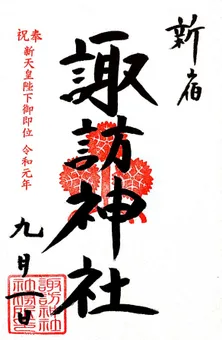 新宿
諏訪神社
奉祝
新天皇陛下御即位 令和元年
九月一日
諏訪神社